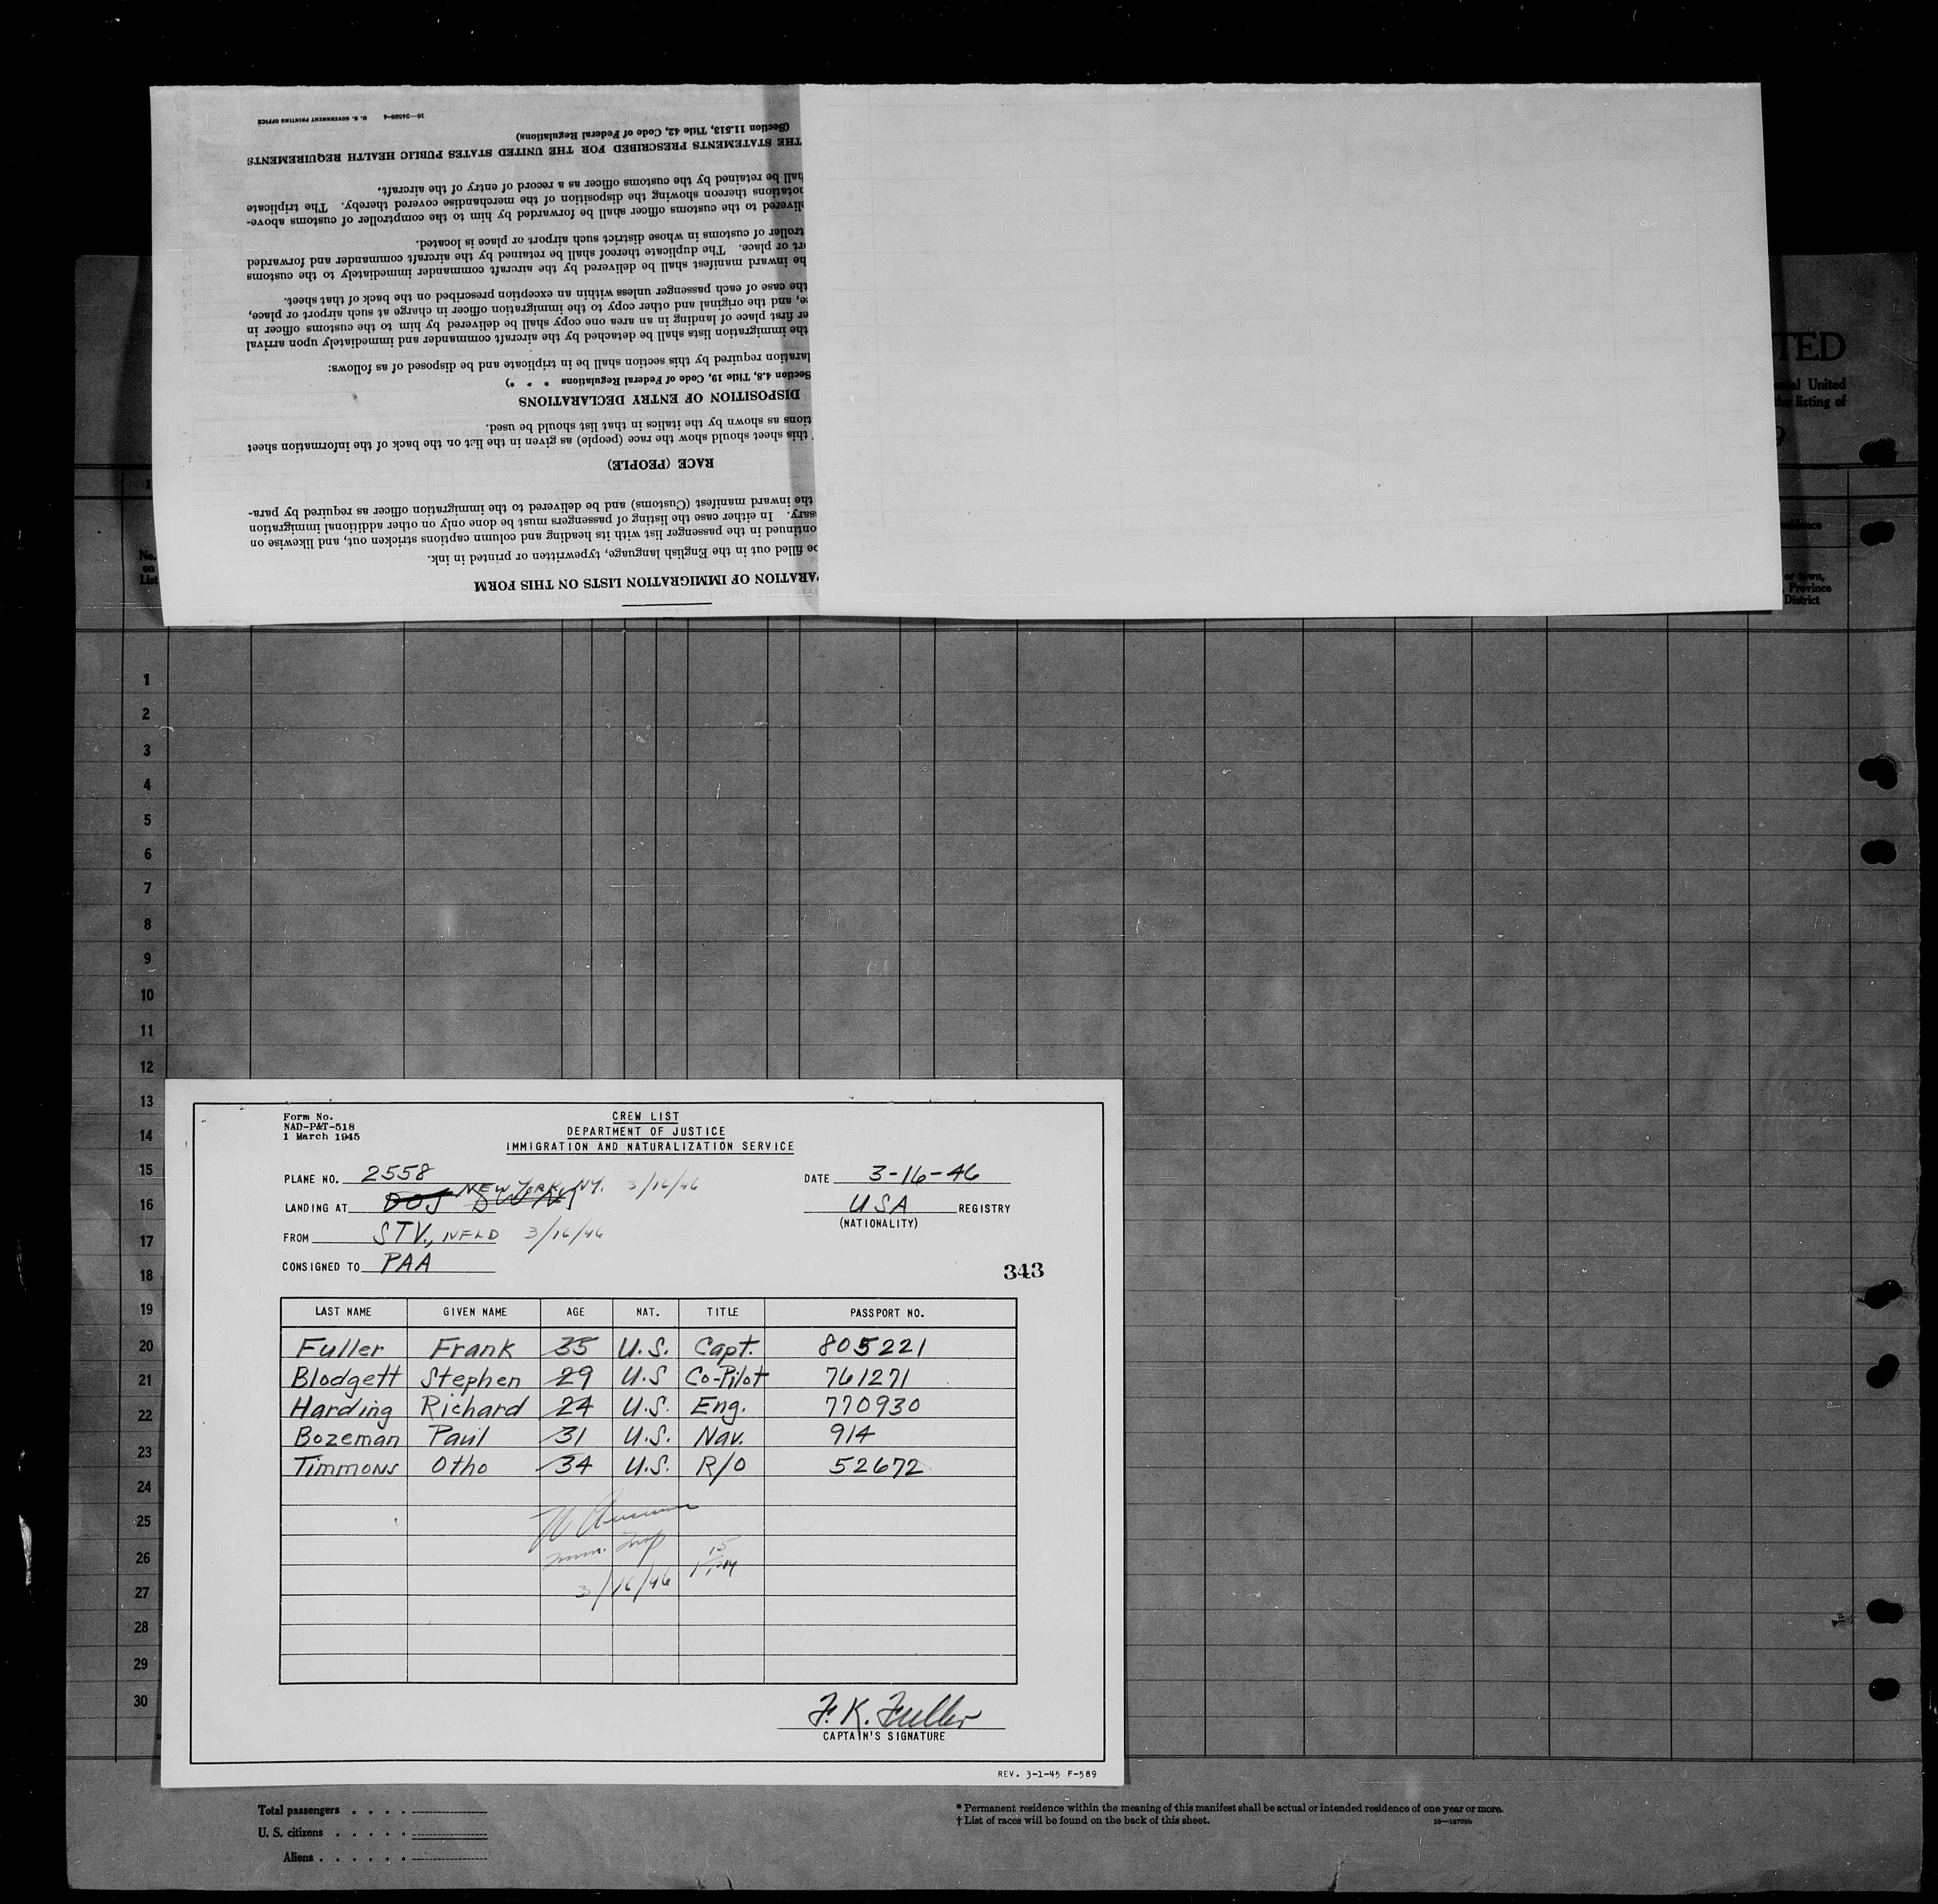 16—24598-4 U. S. GOVERNMENT PRINTING OFFICE
(Section 11.513, Title 42, Code of Federal Regulations)
THE STATEMENTS PRESCRIBED FOR THE UNITED STATES PUBLIC HEALTH REQUIREMENTS
hall be retained by the customs officer as a record of entry of the aircraft.
notations thereon showing the disposition of the merchandise covered thereby. The triplicate
livered to the customs officer shall be forwarded by him to the comptroller of customs above-
troller of customs in whose district such airport or place is located.
rt or place. The duplicate thereof shall be retained by the aircraft commander and forwarded
he inward manifest shall be delivered by the aircraft commander immediately to the customs
the case of each passenger unless within an exception prescribed on the back of that sheet.
e, and the original and other copy to the immigration officer in charge at such airport or place,
er first place of landing in an area one copy shall be delivered by him to the customs officer in
the immigration lists shall be detached by the aircraft commander and immediately upon arrival
laration required by this section shall be in triplicate and be disposed of as follows:
Section 4.8, Title 19, Code of Federal Regulations * * *)
DISPOSITION OF ENTRY DECLARATIONS
tions as shown by the italics in that list should be used.
this sheet should show the race (people) as given in the list on the back of the information sheet
RACE (PEOPLE)
the inward manifest (Customs) and be delivered to the immigration officer as required by para-
sary. In either case the listing of passengers must be done only on other additional immigration
ontinued in the passenger list with its heading and column captions stricken out, and likewise on
be filled out in the English language, typewritten or printed in ink.
PARATION OF IMMIGRATION LISTS ON THIS FORM
TED
United
the listing of
No.
on
List
or town,
Province
District
1
2
3
4
5
6
7
8
9
10
11
12
13
14
15
16
17
18
19
20
21
22
23
24
25
26
27
28
29
30
Form No.
NAD-P&T-518
1 March 1945
CREW LIST
DEPARTMENT OF JUSTICE
IMMIGRATION AND NATURALIZATION SERVICE
PLANE NO. 2558 DATE 3-16-46
LANDING AT NEW YORK, NY. 3/16/46 USA REGISTRY
(NATIONALITY)
FROM STV., NFLD 3/16/46
CONSIGNED TO PAA
343
LAST NAME GIVEN NAME AGE NAT. TITLE PASSPORT NO.
Fuller Frank 35 U.S. Capt. 805221
Blodgett Stephen 29 U.S Co-Pilot 761271
Harding Richard 24 U.S. Eng. 770930
Bozeman Paul 31 U.S. Nav. 914
Timmons Otho 34 U.S. R/O 52672
Imm. Insp
3/16/46
F. K. Fuller
CAPTAIN'S SIGNATURE
REV. 3-1-45 F-589
Total passengers . . . .
U. S. citizens . . . . .
Aliens . . . . . .
* Permanent residence within the meaning of this manifest shall be actual or intended residence of one year or more.
† List of races will be found on the back of this sheet.